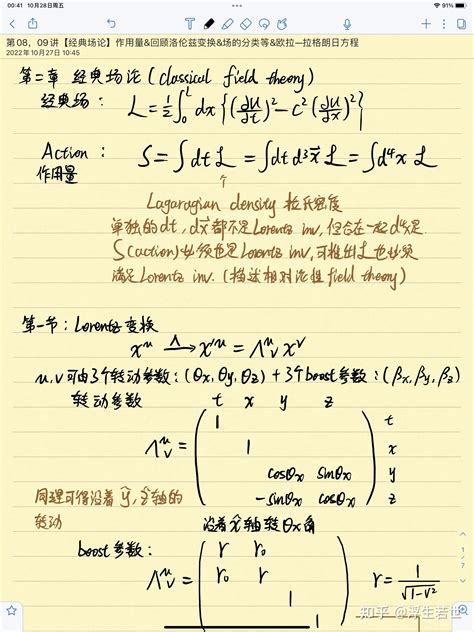 00:41 10月28日周五
91%
第08，09讲【经典场论】作用量&回顾洛伦兹变换&场的分类等&欧拉—拉格朗日方程
2022年10月27日 10:45
第二章 经典场论 (classical field theory)
经典场： L = ½∫₀ᴸ dx {(∂u/∂t)² - c²(∂u/∂x)²}
Action： S = ∫dt L = ∫dt d³x⃗ ℒ = ∫d⁴x ℒ
作用量
↑
Lagaragian density 拉氏密度
单独的dt, dx⃗都不是Lorentz inv, 但合在一起d⁴x是.
S(action)必须也是Lorentz inv, 可推出ℒ也必须
满足Lorentz inv. (描述相对论性field theory)
第一节：Lorentz 变换
x^μ —Λ→ x'^μ = Λ^μ_ν x^ν
μ,ν可由3个转动参数：(θx, θy, θz) + 3个boost参数：(βx, βy, βz)
转动参数 t x y z
1 t
Λ^μ_ν = 1 x
cosθx sinθx y
-sinθx cosθx z
同理可得沿着ŷ, ẑ轴的
转动
沿着x̂轴转θx角
boost参数：
r r₀
Λ^μ_ν = r₀ r r = 1/√(1-v²)
1
1
1
7
知乎 @浮生若世